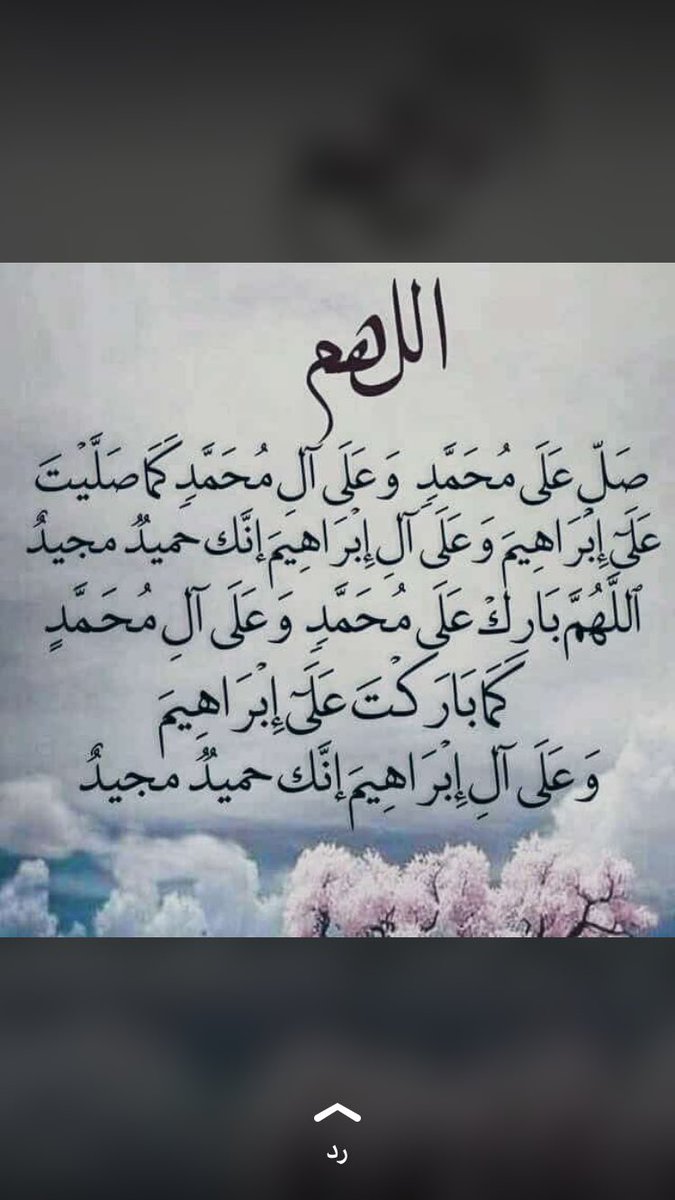 اللهم
صَلّ عَلَى مُحَمَّدٍ وَعَلَى آلِ مُحَمَّدٍ كَمَا صَلَّيْتَ
عَلَىٰٓ إِبْرَاهِيمَ وَعَلَى آلِ إِبْرَاهِيمَ إنَّك حميدٌ مجيدٌ
ٱللَّهُمَّ بَارِكْ عَلَى مُحَمَّدٍ وَعَلَى آلِ مُحَمَّدٍ
كَمَا بَارَكْتَ عَلَىٰٓ إِبْرَاهِيمَ
وَعَلَى آلِ إِبْرَاهِيمَ إنَّك حميدٌ مجيدٌ
رد